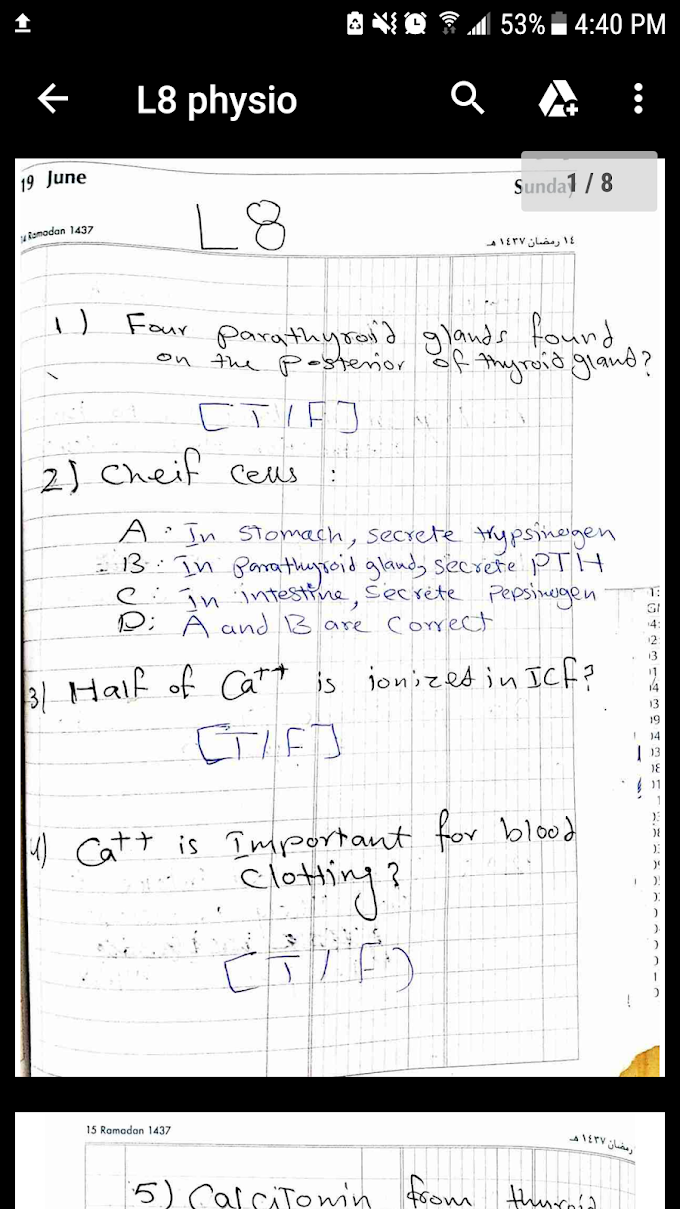 53% 4:40 PM
L8 physio
19 June
Sunday 1 / 8
Ramadan 1437
١٤ رمضان ١٤٣٧ هـ
L8
1) Four parathyroid glands found
on the posterior of thyroid gland?
[T/F]
2) Cheif cells :
A: In stomach, secrete trypsinogen
B: In parathyroid gland, secrete PTH
C: in intestine, Secrete Pepsinogen
D: A and B are Correct
3) Half of Ca++ is ionized in ICF?
[T/F]
4) Ca++ is Important for blood
Clotting?
[T/F)
4:
12
13
14
13
19
14
13
18
11
15 Ramadan 1437
رمضان ١٤٣٧ هـ
5) Calcitonin from thyroid